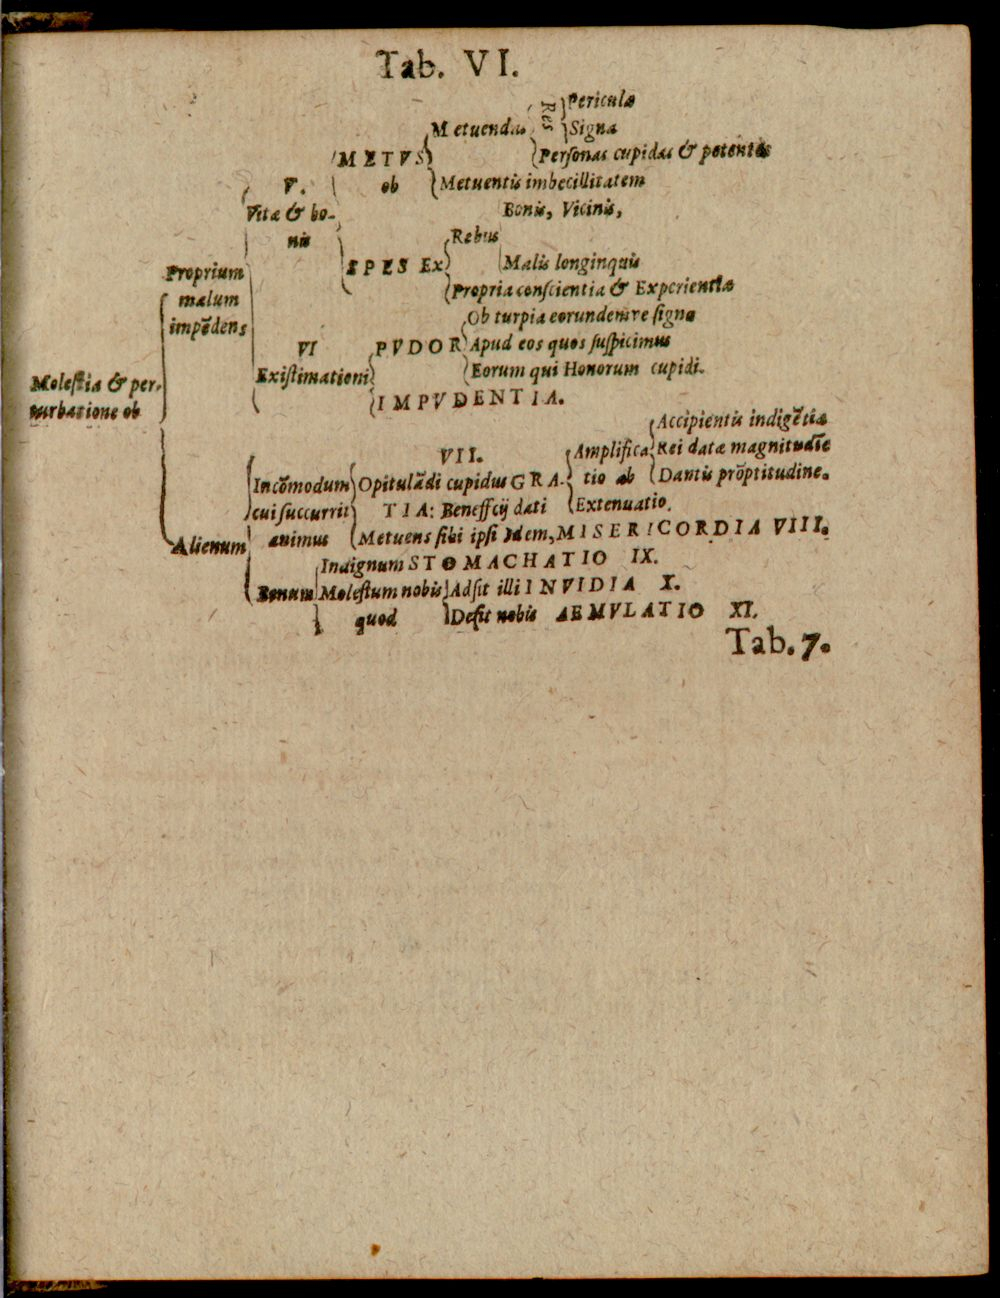 Tab. VI.
Periculæ
Res
Metuendas
Signa
METVS
Personas cupidas & potentes
V.
ob
Metuentis imbecillitatem
Vitæ & bo-
Bonis, Vicinis,
nis
Rebus
SPES Ex
Malis longinquis
Proprium
Propria conscientia & Experientia
malum
Ob turpia eorundemre signa
impēdens
VI
PVDOR
Apud eos quos suspicimus
Existimationi
Eorum qui Honorum cupidi.
Molestia & per-
turbatione ob
IMPVDENTIA.
Accipientis indigētia
Amplifica
Rei datæ magnitudīe
VII.
Incōmodum
Opitulādi cupidus GRA-
tio ab
Dantis prōptitudine.
cui succurrit
TIA: Beneficij dati
Extenuatio.
Alienum
animus
Metuens sibi ipsi Idem, MISERICORDIA VIII.
Indignum STOMACHATIO IX.
Bonum
Molestum nobis
Adsit illi INVIDIA X.
quod
Desit nobis AEMVLATIO XI.
Tab. 7.